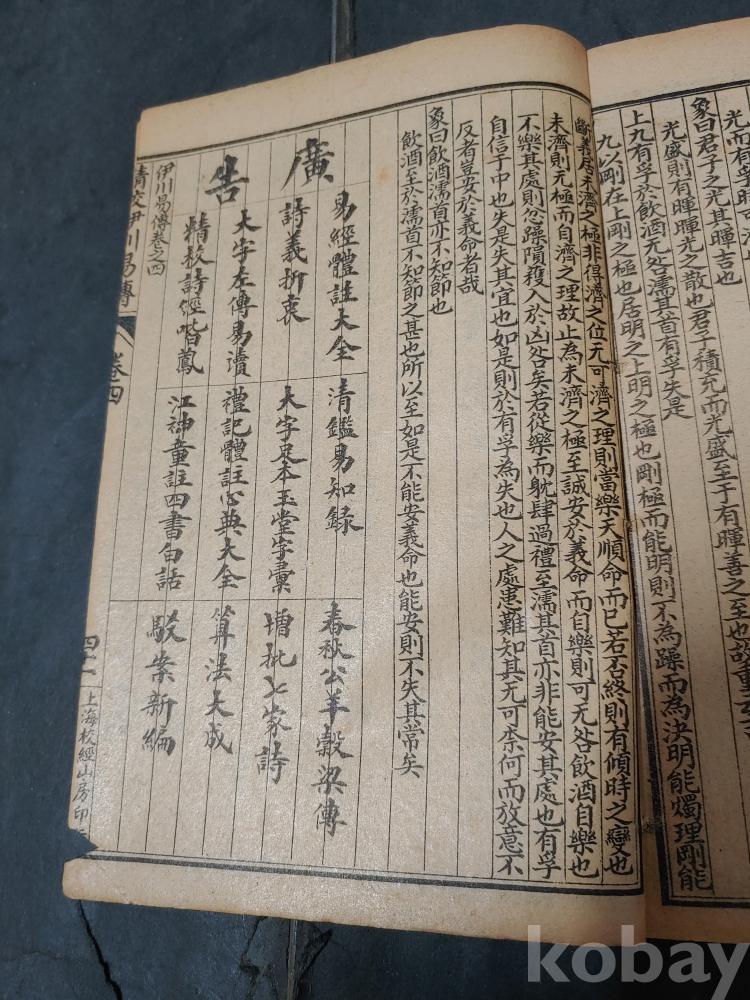 光而有孚時
象曰君子之光其暉吉也
光盛則有暉暉光之散也君子積充而光盛至于有暉善之至也故重云吉
上九有孚於飲酒无咎濡其首有孚失是
九以剛在上剛之極也居明之上明之極也剛極而能明則不為躁而為決明能燭理剛能
斷義居未濟之極非得濟之位无可濟之理則當樂天順命而已若否終則有傾時之變也
未濟則无極而自濟之理故止為未濟之極至誠安於義命而自樂則可无咎飲酒自樂也
不樂其處則忿躁隕穫入於凶咎矣若從樂而躭肆過禮至濡其首亦非能安其處也有孚
自信于中也失是失其宜也如是則於有孚為失也人之處患難知其无可柰何而放意不
反者豈安於義命者哉
象曰飲酒濡首亦不知節也
飲酒至於濡首不知節之甚也所以至如是不能安義命也能安則不失其常矣
廣告
易經體註大全 清鑑易知録 春秋公羊穀梁傳
詩義折衷 大字足本玉堂字彙 增批七家詩
大字左傳易讀 禮記體註心典大全 算法大成
精校詩經喈鳳 江神童註四書白話 駁案新編
伊川易傳卷之四
精校伊川易傳 卷四 四十一 上海校經山房印
kobay